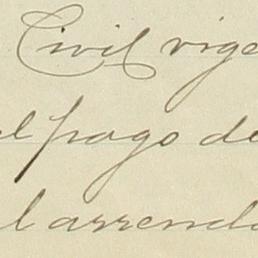 Civil vige
el pago de
l arrenda